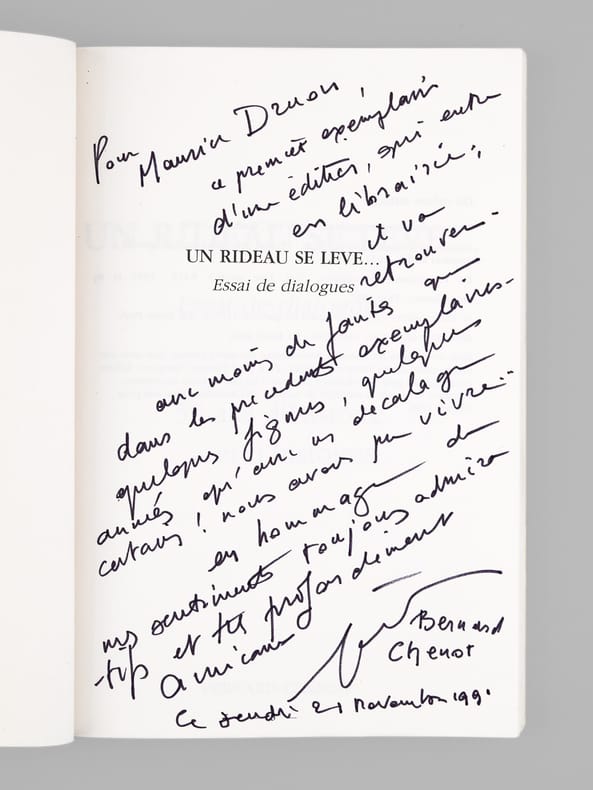 Pour
Maurice Druon,
ce premier exemplaire
d'une édition, qui entre
en librairie,
UN RIDEAU SE LEVE...
Essai de dialogues
et va
retrouver
avec moins de fautes que
dans les précédents exemplaires
quelques lignes, quelques
années qu'avec un décalage
certain! nous avons pu vivre...
en hommage de
mes sentiments toujours admira
-tifs et très profondément
amicaux
Bernard
Chenot
Ce 21 novembre 1991